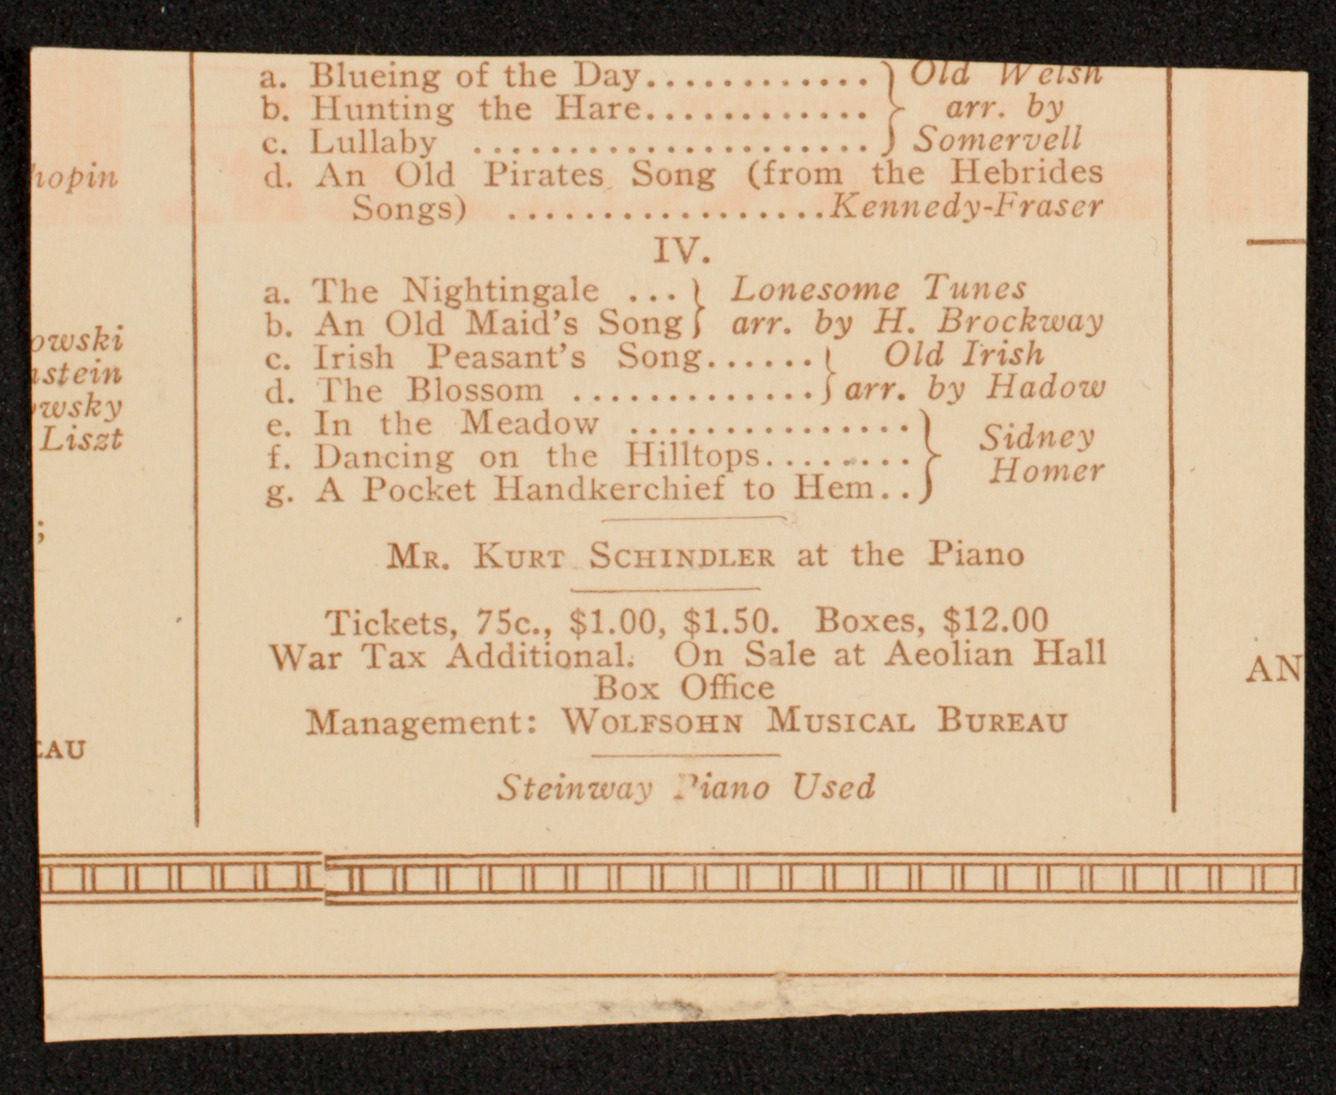 a. Blueing of the Day............ } Old Welsh
b. Hunting the Hare............ } arr. by
c. Lullaby ...................... } Somervell
d. An Old Pirates Song (from the Hebrides
Songs) .................Kennedy-Fraser
IV.
a. The Nightingale ... } Lonesome Tunes
b. An Old Maid's Song } arr. by H. Brockway
c. Irish Peasant's Song...... } Old Irish
d. The Blossom ............. } arr. by Hadow
e. In the Meadow ...............
f. Dancing on the Hilltops........ } Sidney
g. A Pocket Handkerchief to Hem.. } Homer
Mr. Kurt Schindler at the Piano
Tickets, 75c., $1.00, $1.50. Boxes, $12.00
War Tax Additional. On Sale at Aeolian Hall
Box Office
Management: Wolfsohn Musical Bureau
Steinway Piano Used
hopin
owski
nstein
wsky
Liszt
;
EAU
AN